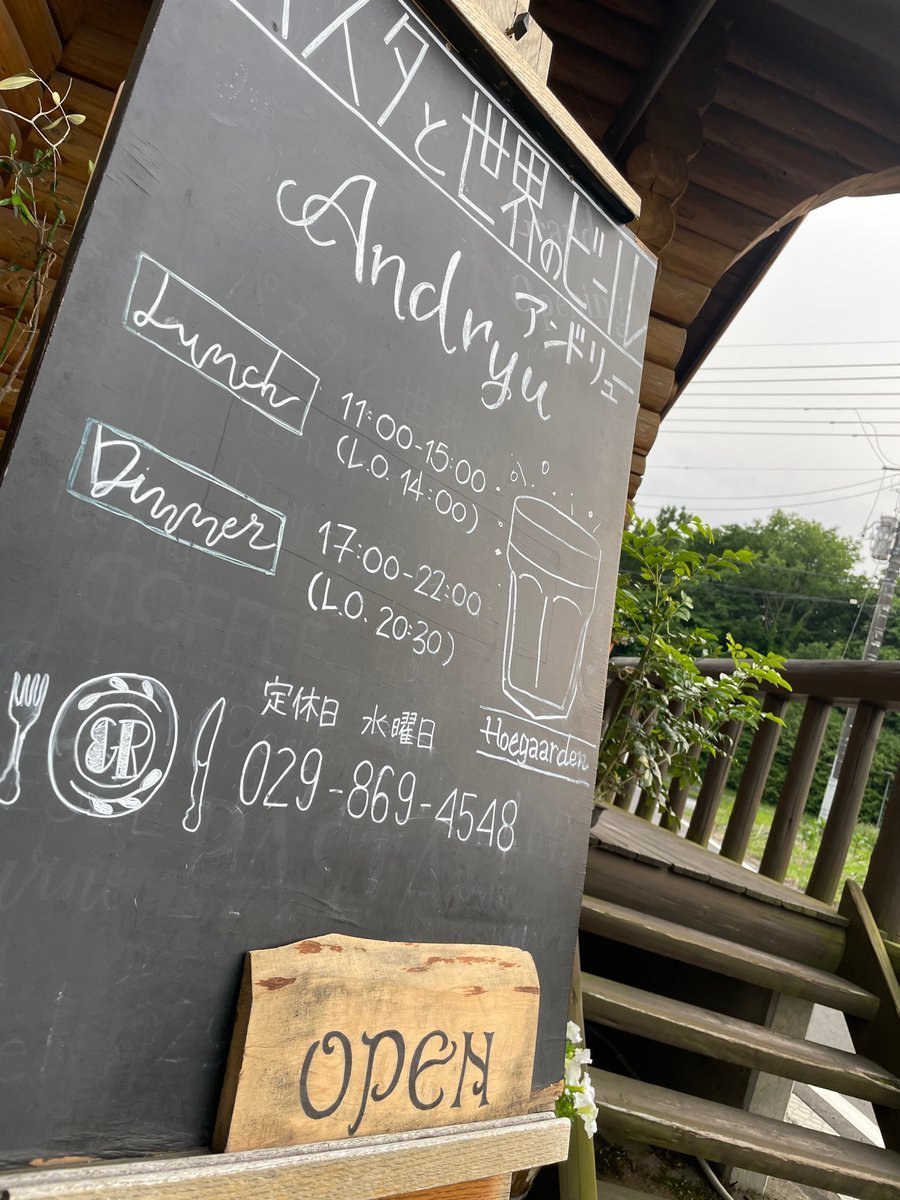 パスタと世界のビール
Andryu
アンドリュー
Lunch
11:00-15:00
(L.O. 14:00)
Dinner
17:00-22:00
(L.O. 20:30)
Hoegaarden
定休日 水曜日
029-869-4548
OPEN